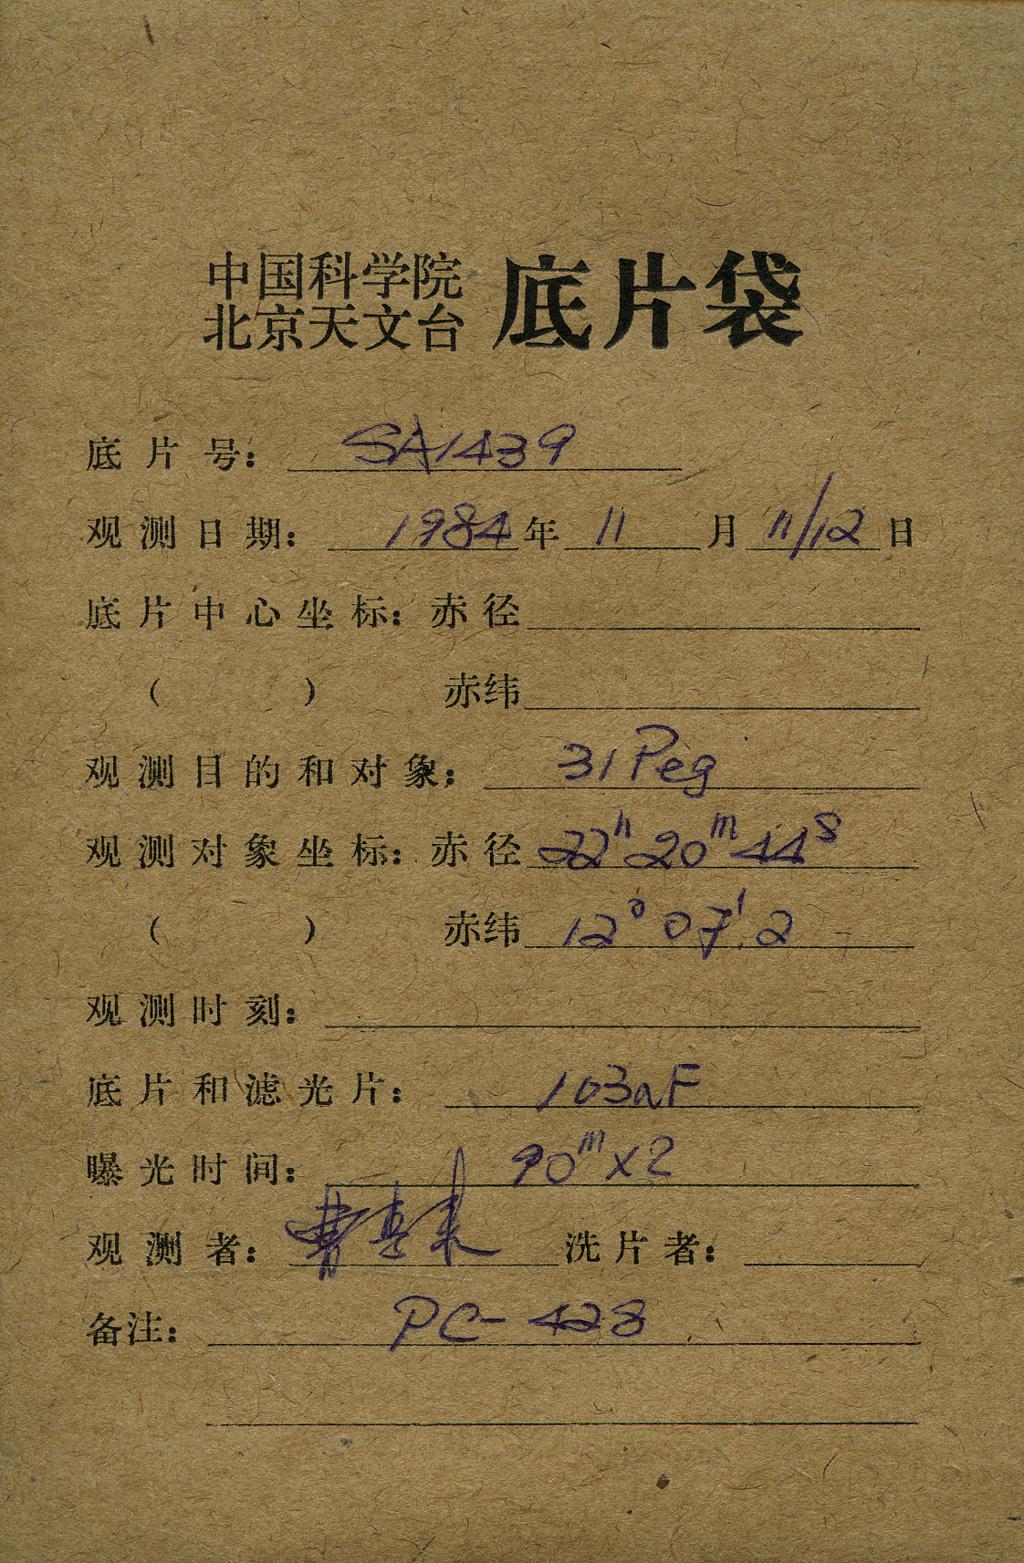 中国科学院
北京天文台 底片袋
底片号: SA1439
观测日期: 1984年 11 月 11/12 日
底片中心坐标: 赤径
( ) 赤纬
观测目的和对象: 31 Peg
观测对象坐标: 赤径 22h 20m 44s
( ) 赤纬 12° 07'.2
观测时刻:
底片和滤光片: 103aF
曝光时间: 90m×2
观测者: 洗片者:
备注: PC-428